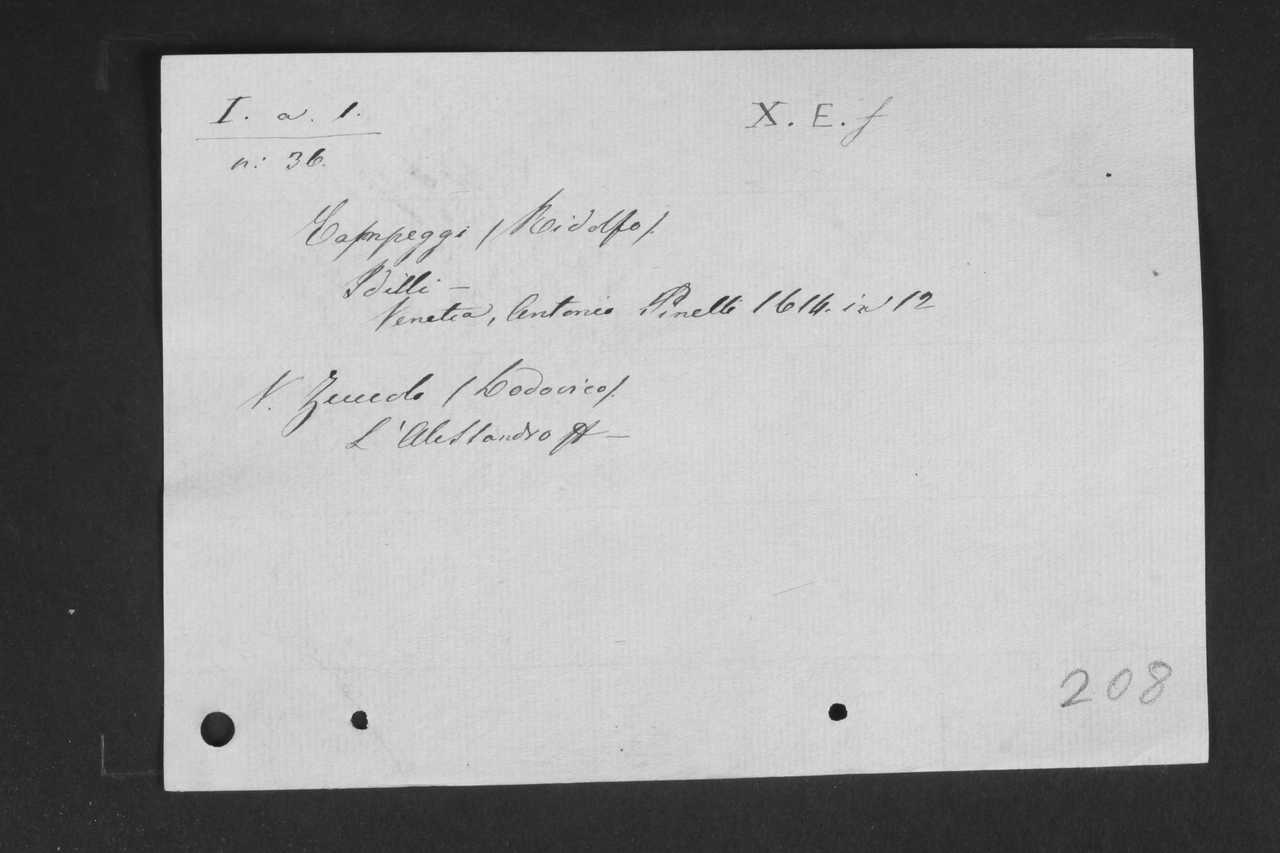 I. a. 1.
X. E. f
n: 36.
Campeggi (Ridolfo).
Idilli —
Venetia, Antonio Pinelli 1614. in 12
V. Zuccolo (Lodovico).
L'Alessandro —
208